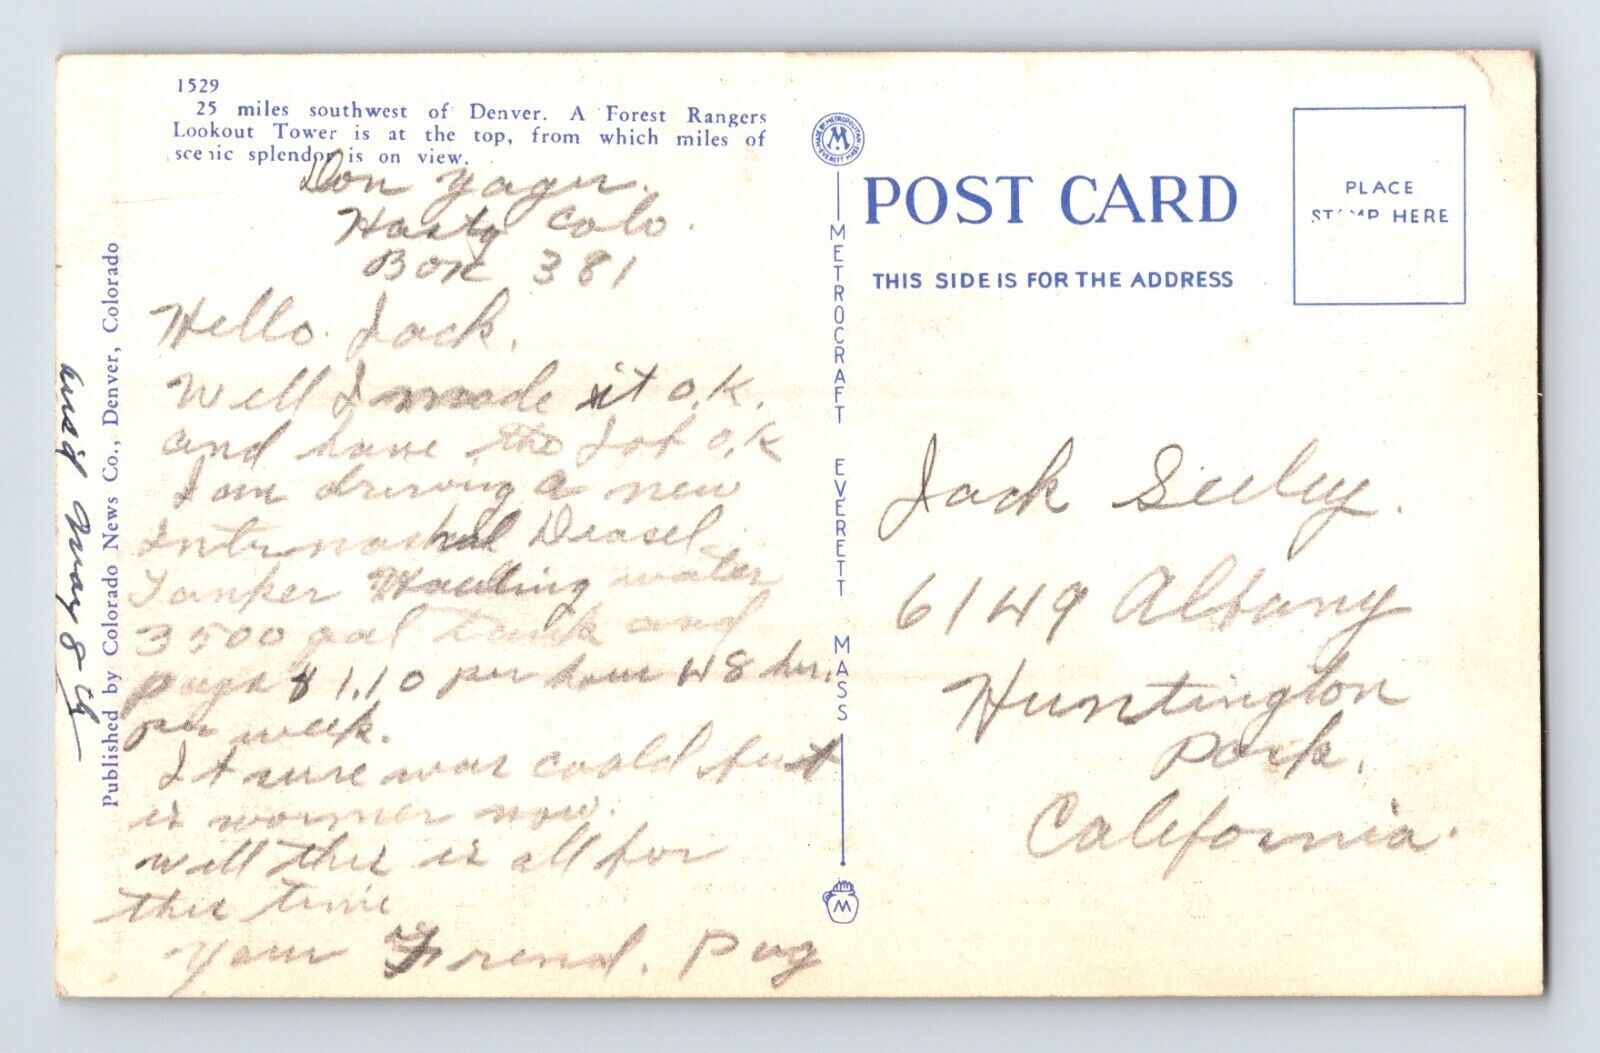 1529
25 miles southwest of Denver. A Forest Rangers
Lookout Tower is at the top, from which miles of
scenic splendor is on view.
Don Yager.
Hasty Colo.
Box 381
Hello Jack,
Well I made it o.k.
and have the Job o,k
I am driving a new
Internashal Deasel
Tanker Haulling water
3500 gal tank and
pays $1.10 per hour 48 hr.
per week.
It sure was coald but
is warmer now.
well this is all for
this time
Your Friend. Pug
Published by Colorado News Co., Denver, Colorado
ans'd May 8
MADE BY METROPOLITAN
EVERETT MASS
M
METROCRAFT EVERETT MASS
W
POST CARD
THIS SIDE IS FOR THE ADDRESS
PLACE
STAMP HERE
Jack Seeley.
6149 Albany
Huntington
Park,
California.